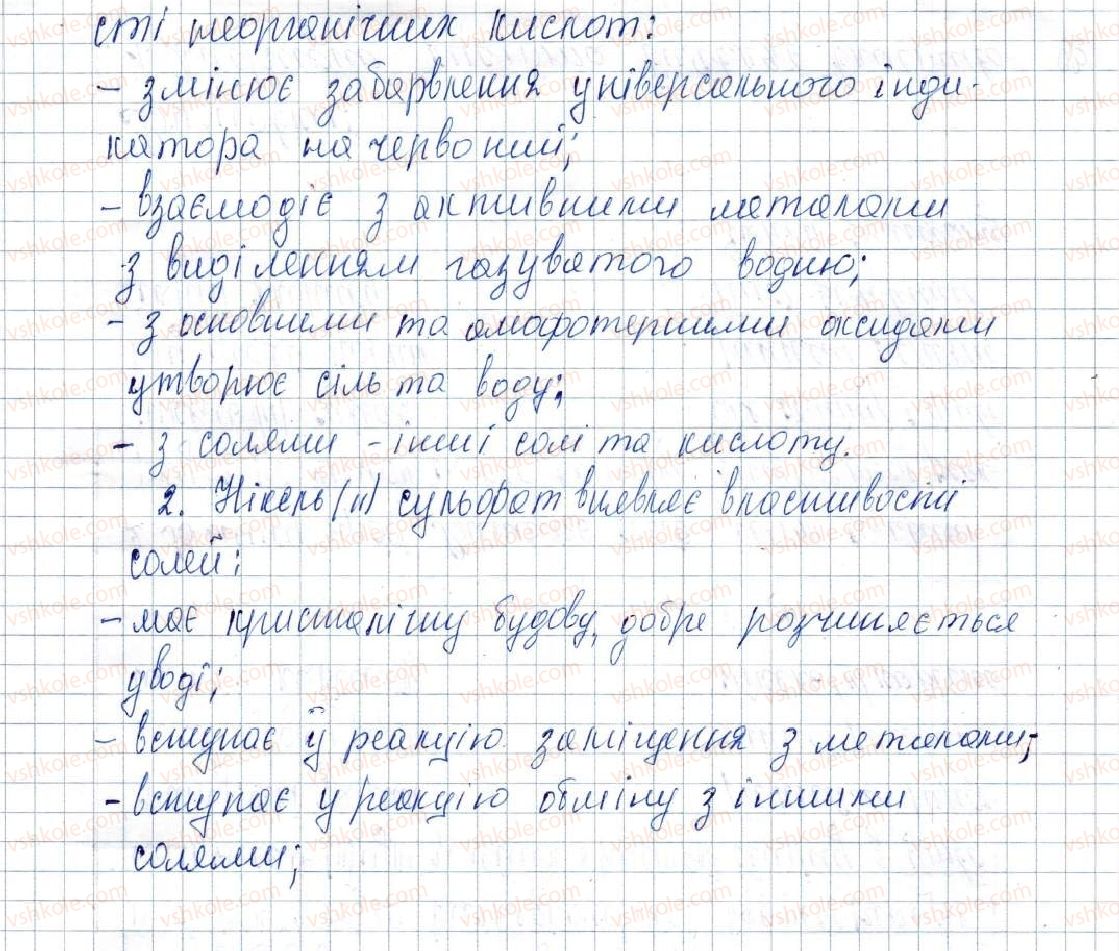 сті неорганічних кислот:
- змінює забарвлення універсального інди-
катора на червоний;
- взаємодіє з активними металами
з виділенням газуватого водню;
- з основними та амфотерними оксидами
утворює сіль та воду;
- з солями - інші солі та кислоту.
2. Нікель (II) сульфат виявляє властивості
солей:
- має кристалічну будову, добре розчиняється
у воді;
- вступає у реакцію заміщення з металами;
- вступає у реакцію обміну з іншими
солями;